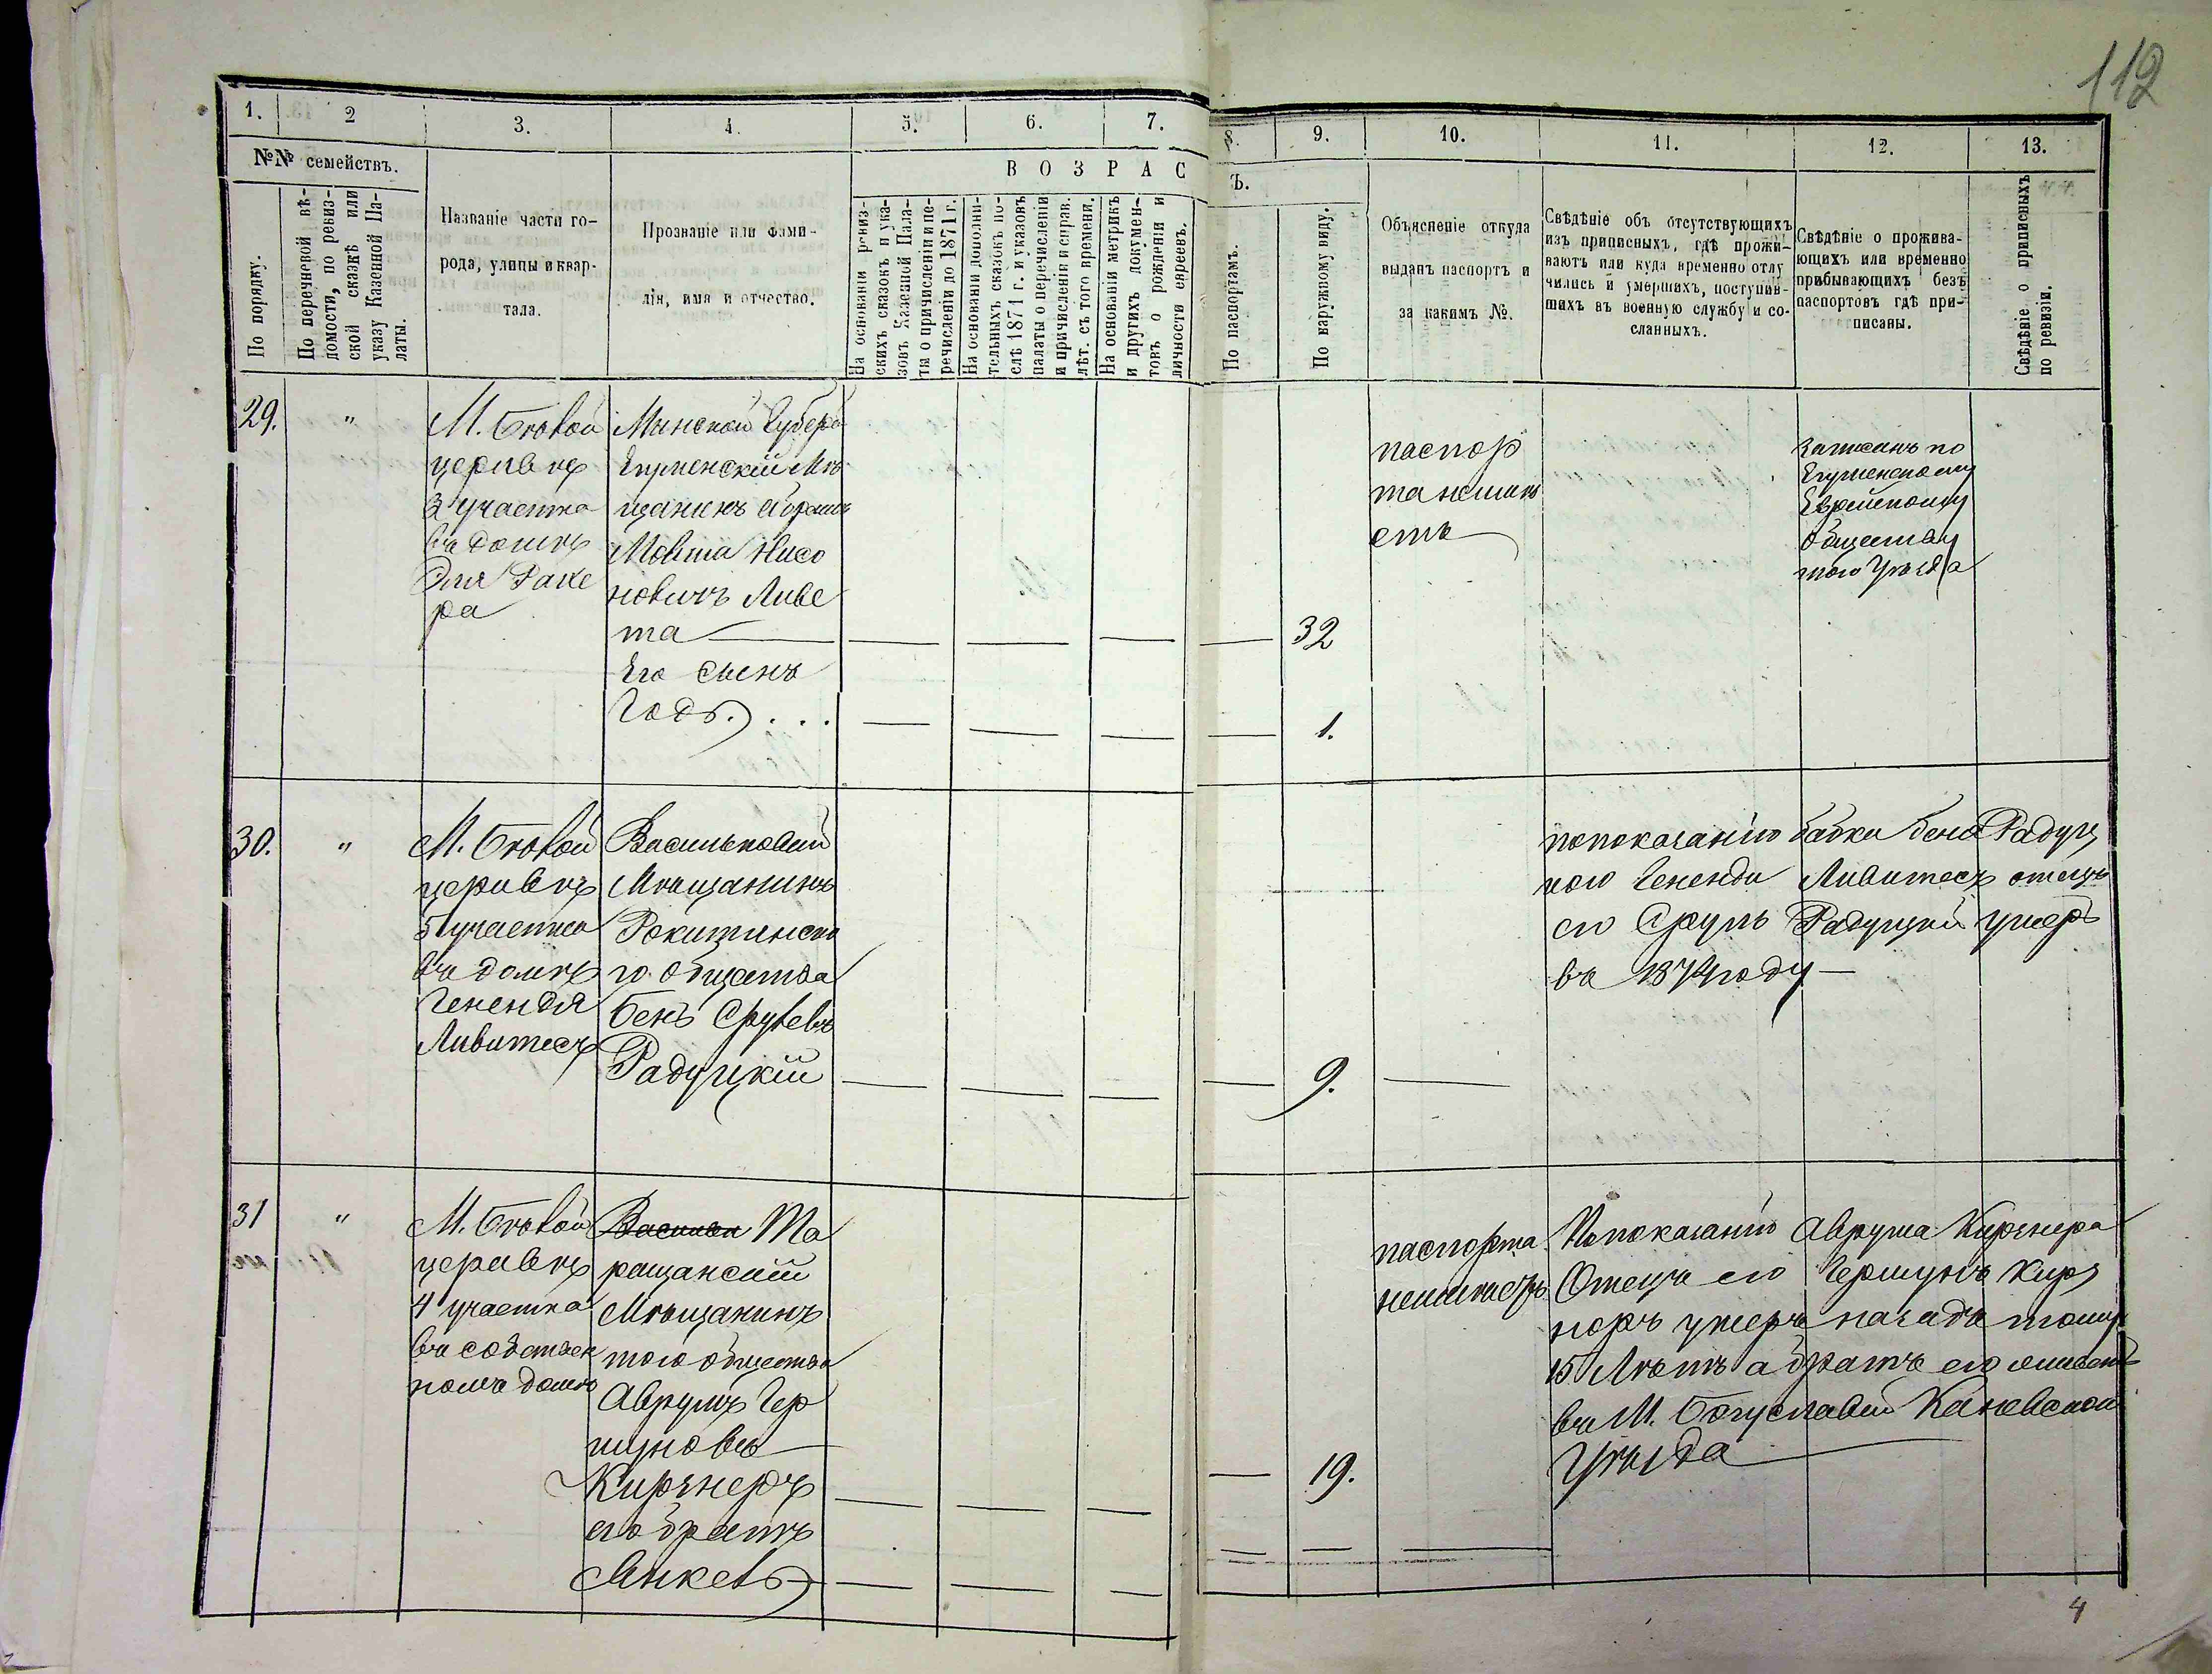 112
1.
2
3.
4.
5.
6.
7.
8.
9.
10.
11.
12.
13.
№№ семействъ.
По порядку.
По перечневой вѣ-
домости, по ревиз-
ской сказкѣ или
указу Казенной Па-
латы.
Названіе части го-
рода, улицы и квар-
тала.
Прозваніе или фами-
лія, имя и отчество.
ВОЗРАС
Ъ.
На основаніи ревиз-
скихъ сказокъ и ука-
зовъ Казенной Пала-
ты о причисленіи и пе-
речисленіи до 1871 г.
На основаніи дополни-
тельныхъ сказокъ по-
слѣ 1871 г. и указовъ
палаты о перечисленіи
и причисленіи и справ.
лѣт. съ того времени.
На основаніи метрикъ
и другихъ докумен-
товъ о рожденіи и
личности евреевъ.
По паспортамъ.
По наружному виду.
Объясненіе откуда
выданъ паспортъ и
за какимъ №.
Свѣдѣніе объ отсутствующихъ
изъ приписныхъ, гдѣ прожи-
ваютъ или куда временно отлу
чились и умершихъ, поступив-
шихъ въ военную службу и со-
сланныхъ.
Свѣдѣніе о прожива-
ющихъ или временно
прибывающихъ безъ
паспортовъ гдѣ при-
писаны.
Свѣдѣніе о приписныхъ
по ревизіи.
29.
"
М. Бѣлой
церквѣ
3 участка
въ домѣ
Эля Раке
ра
Минской Губерн
Егуменскій Мѣ
щанинъ Абрамъ
Мовша Нисо
новичъ Ливе
та
Его Сынъ
Годь. . . .
32
1.
паспор
та неимѣ
етъ
Записанъ по
Егуменскому
Еврейскому
Обществу
того Уѣзда
30.
"
М. Бѣлой
церквѣ
5 участка
въ домѣ
Гененди
Ливитесъ
Васильковскій
Мѣщанинъ
Рокитинска
го общества
Бенъ Срулевъ
Радуцкій
9.
по показанію бабки Бена Радуц
кого Гененди Ливитесъ отецъ
его Сруль Радуцкій умеръ
въ 1874 году
31
"
М. Бѣлой
церквѣ
4 участка
въ собствен
номъ домѣ
Васильк Та
ращанскій
Мѣщанинъ
того общества
Аврумъ Гер
шуновъ
Киржнеръ
его братъ
Янкель
19.
паспорта
неимѣетъ
По показанію Аврума Киржнера
Отецъ его Гершунъ Кирж
неръ умеръ назадъ тому
15 Лѣтъ а братъ его живетъ
въ М. Богуславѣ Каневского
Уѣзда
4